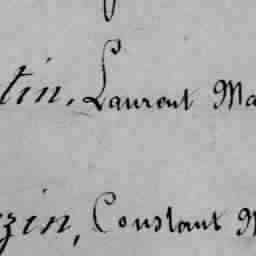 tin, Laurent Ma
zin, Constant M